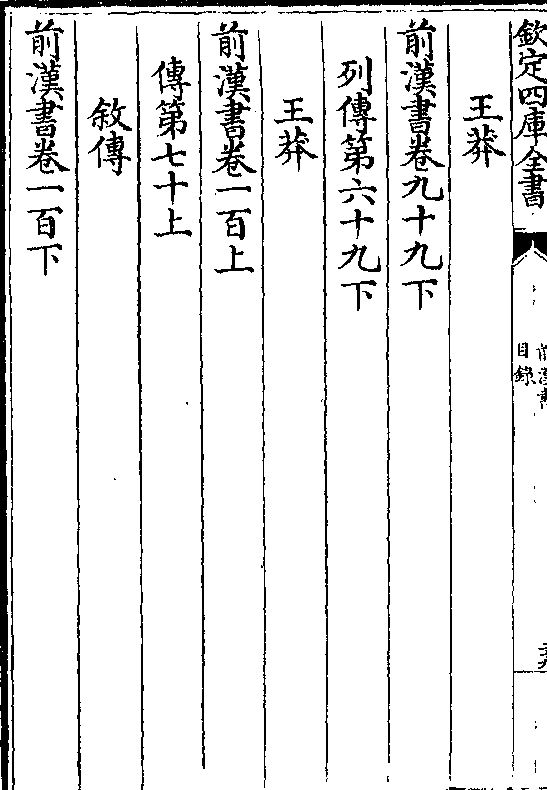 欽定四庫全書
前漢書
目錄
王莽
前漢書卷九十九下
列傳第六十九下
王莽
前漢書卷一百上
傳第七十上
敘傳
前漢書卷一百下